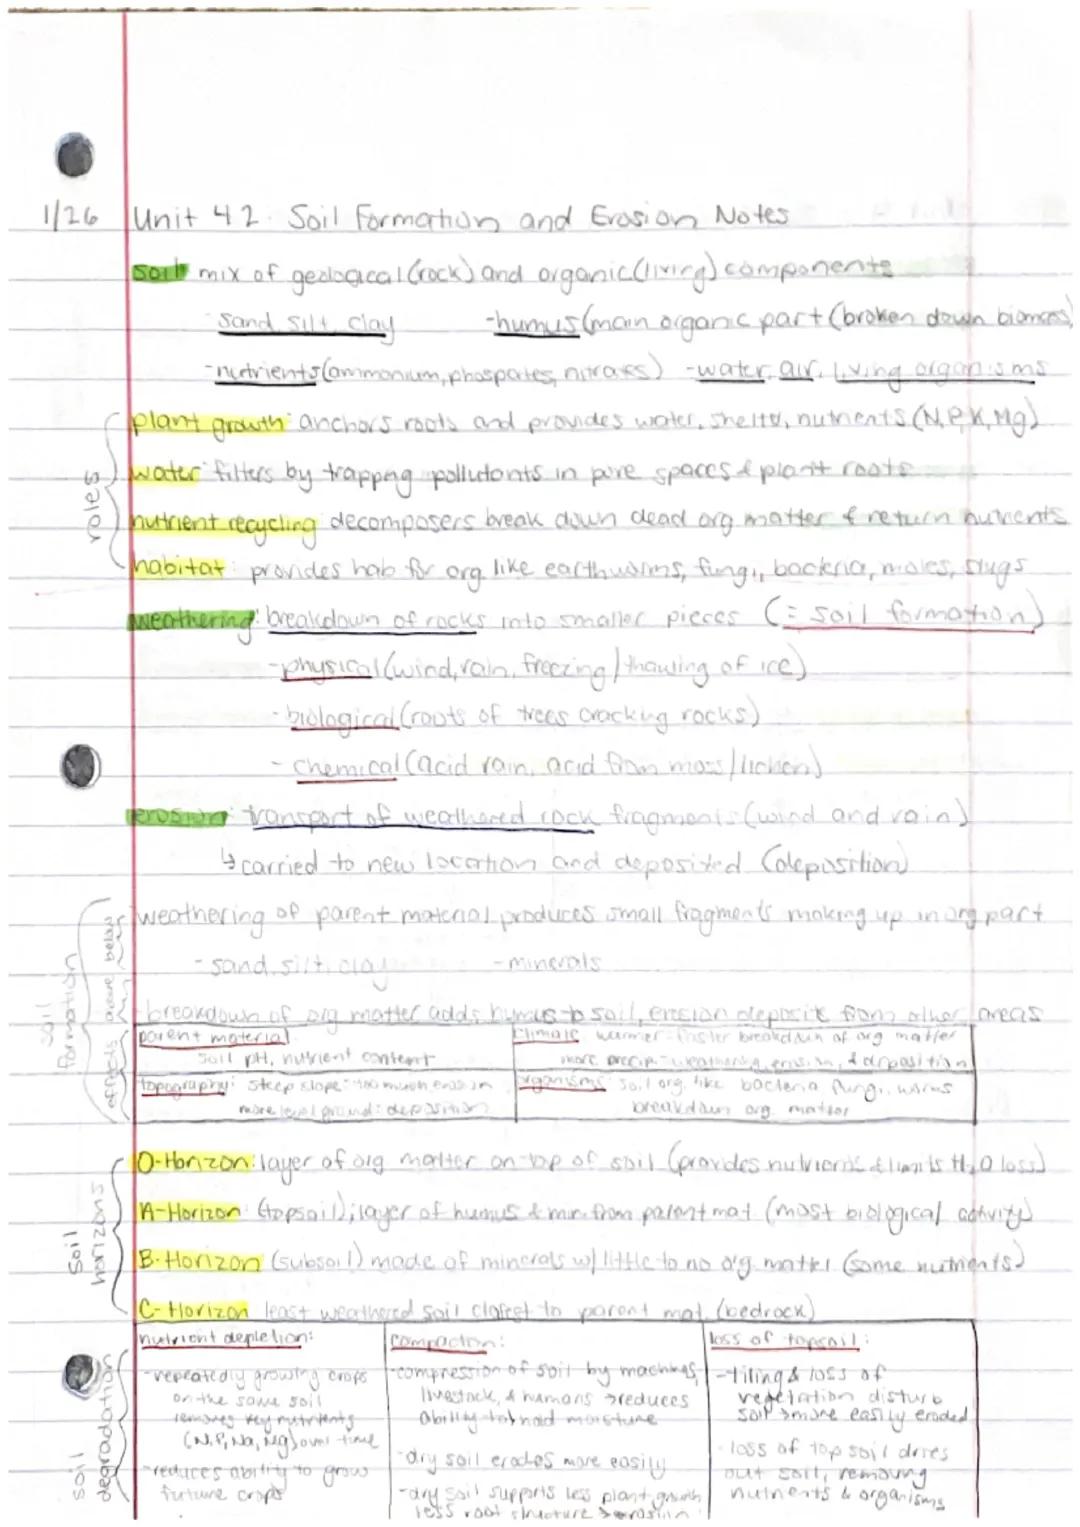 1/26 Unit 4.2: Soil Formation and Erosion Notes
soil: mix of geological (rock) and organic (living) components
- sand, silt, clay - humus (main organic part (broken down biomass)
- nutrients (ammonium, phospates, nitrates) - water, air, living organisms
roles
plant growth: anchors roots and provides water, shelter, nutrients (N, P, K, Mg)
water: filters by trapping pollutants in pore spaces & plant roots
nutrient recycling: decomposers break down dead org matter & return nutrients
habitat: provides hab for org. like earthworms, fungi, bacteria, moles, slugs
weathering: breakdown of rocks into smaller pieces (= soil formation)
- physical (wind, rain, freezing/thawing of ice)
- biological (roots of trees cracking rocks)
- chemical (acid rain, acid from moss/lichen)
erosion: transport of weathered rock fragments (wind and rain)
↳ carried to new location and deposited (deposition)
soil formation
weathering of parent material produces small fragments making up inorg part
- sand, silt, clay - minerals
breakdown of org matter adds humus to soil, erosion deposits from other areas
effects
parent material:
soil pH, nutrient content
climate: warmer = faster breakdown of org matter
more precip = weathering, erosion, & deposition
topography: steep slope = too much erosion
more level ground: deposition
organisms: soil org. like bacteria fungi, worms
breakdown org. matter
soil horizons
O-Horizon: layer of org matter on top of soil (provides nutrients & limits H₂O loss)
A-Horizon: (topsoil); layer of humus & min. from parent mat (most biological activity)
B-Horizon: (subsoil) made of minerals w/ little to no org. matter (some nutrients)
C-Horizon: least weathered soil closest to parent mat. (bedrock)
soil degradation
nutrient depletion:
- repeatedly growing crops
on the same soil
removes key nutrients
(N, P, Na, Mg) over time
- reduces ability to grow
future crops
compaction:
- compression of soil by machines,
livestock, & humans → reduces
ability to hold moisture
- dry soil erodes more easily
- dry soil supports less plant growth
less root structure → erosion
loss of topsoil:
- tiling & loss of
vegetation disturb
soil → more easily eroded
- loss of top soil dries
out soil, removing
nutrients & organisms